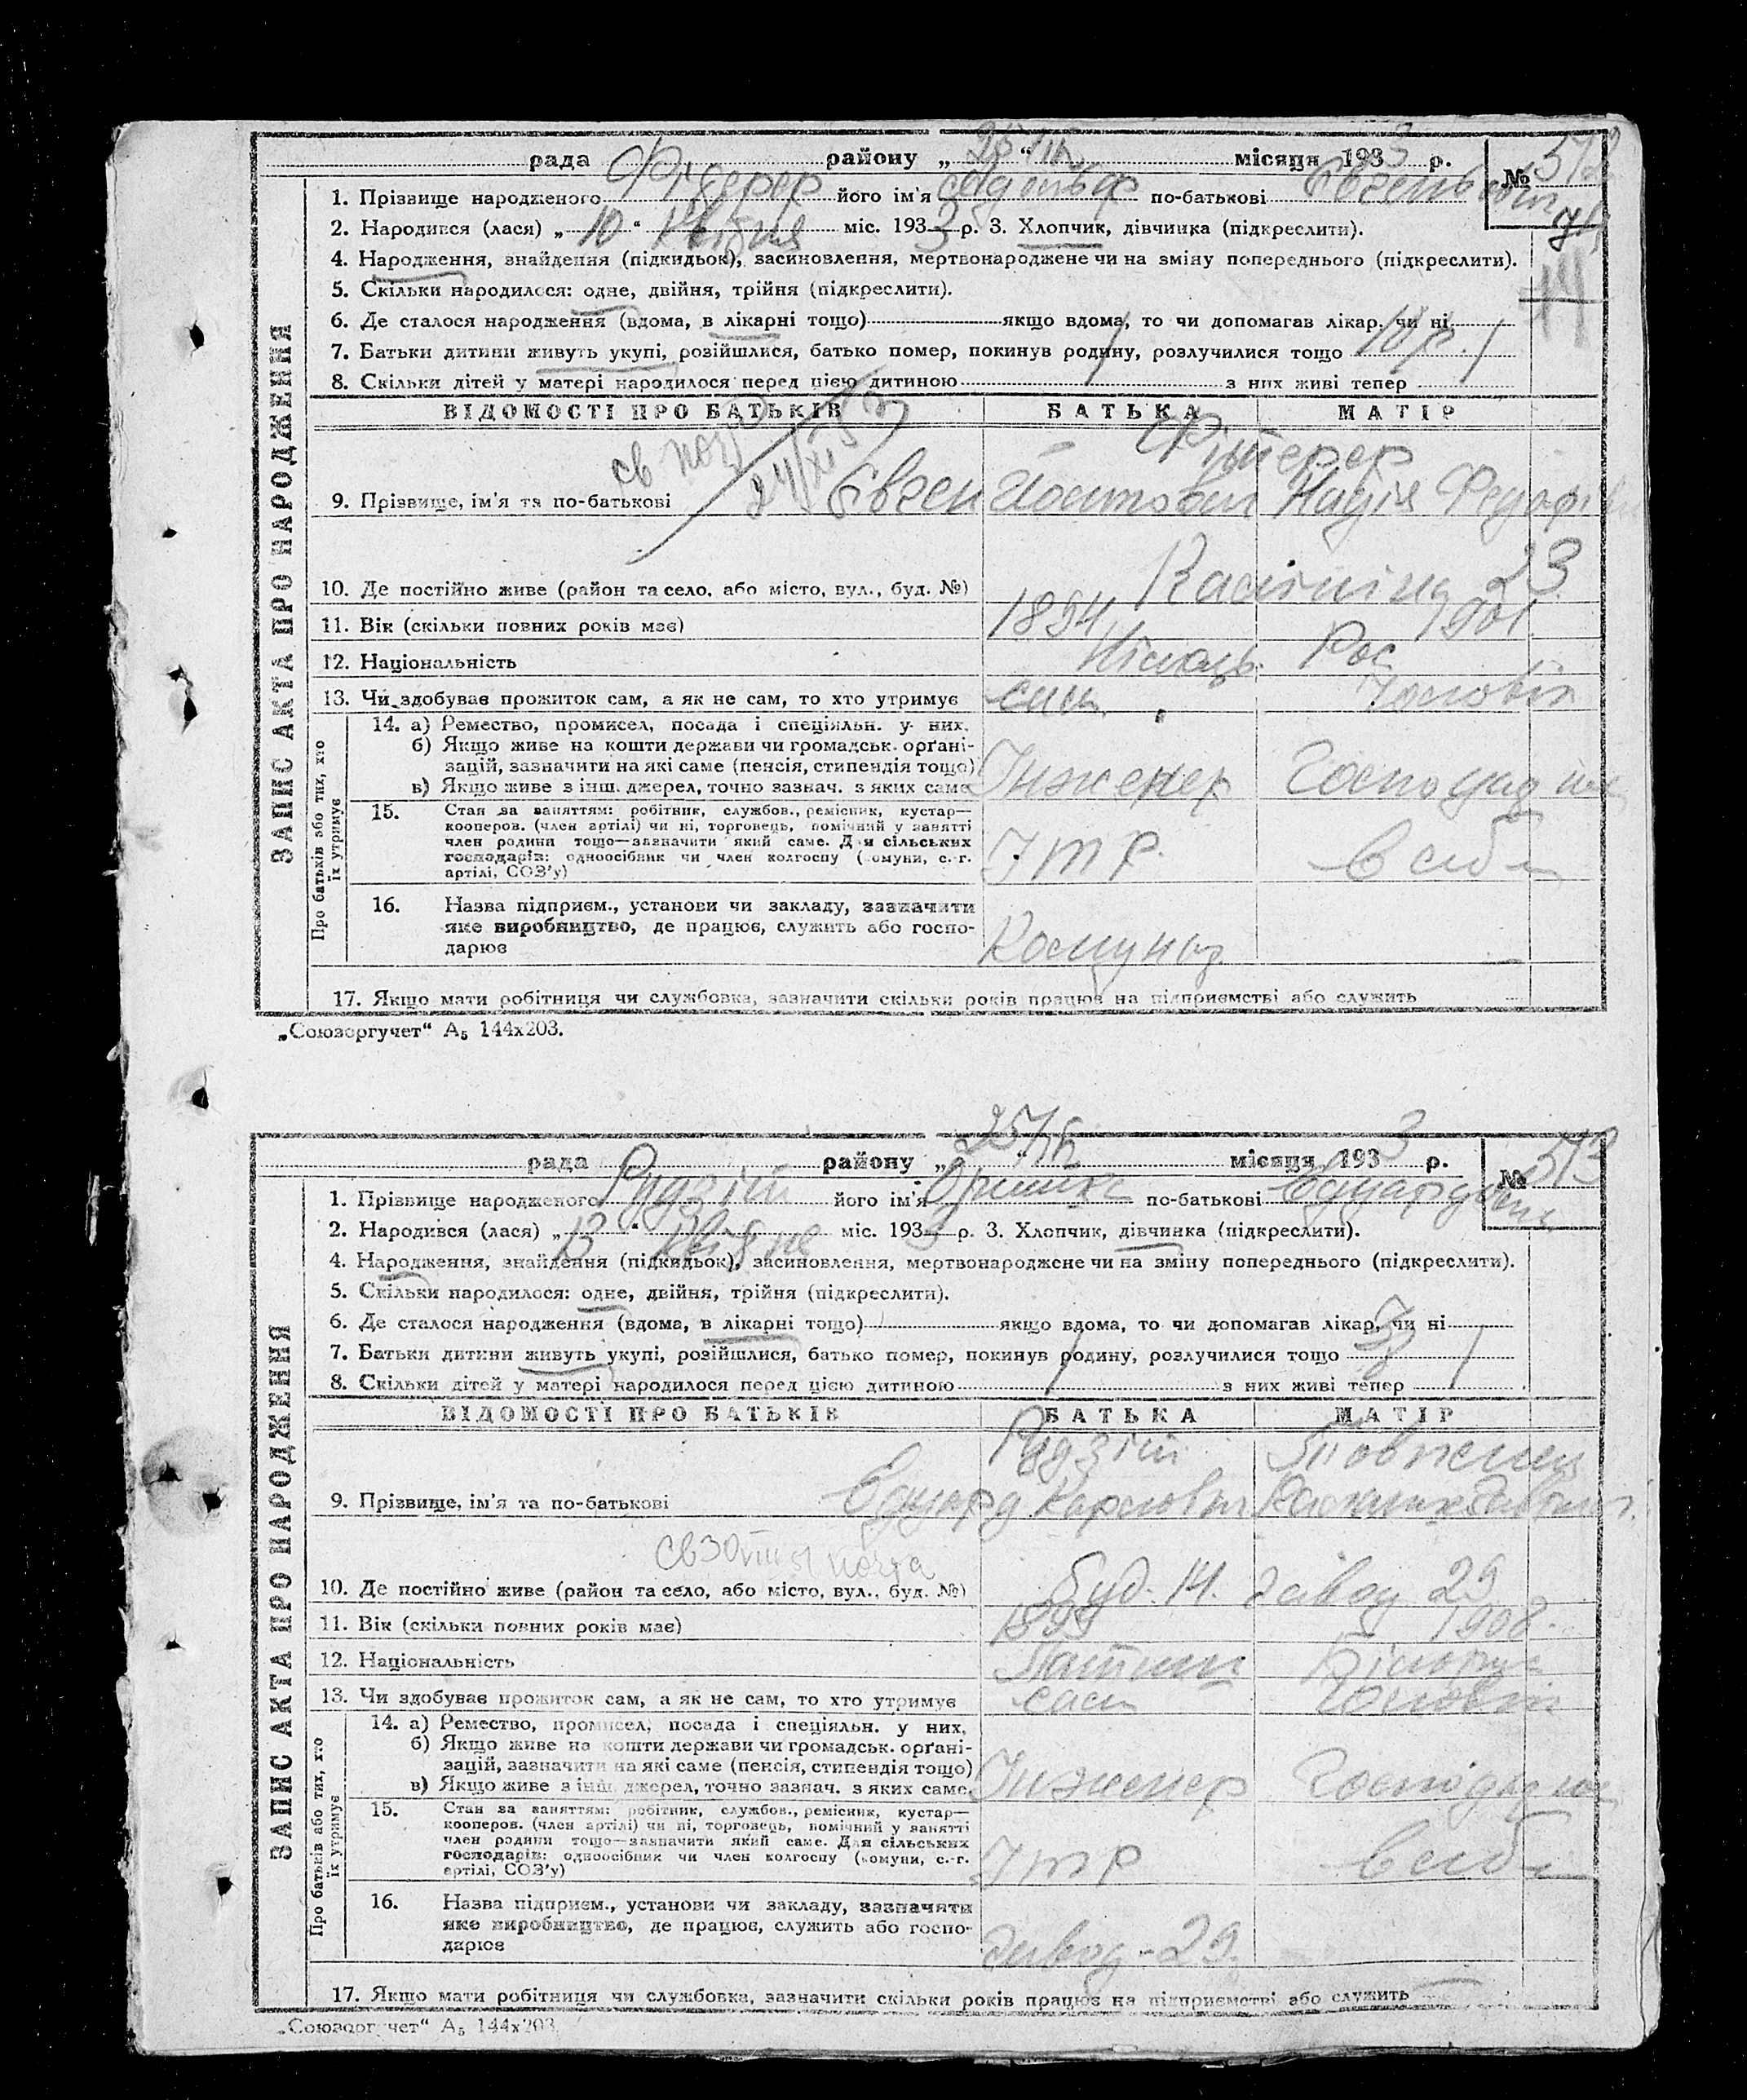 рада району „ 25/IV “ місяця 1933 р. № 572
1. Прізвище народженого його ім'я по-батькові
2. Народився (лася) „ 10 “ Квітня міс. 1933 р. 3. Хлопчик, дівчинка (підкреслити).
4. Народження, знайдення (підкидьок), засиновлення, мертвонароджене чи на зміну попереднього (підкреслити).
14
5. Скільки народилося: одне, двійня, трійня (підкреслити).
6. Де сталося народження (вдома, в лікарні тощо) якщо вдома, то чи допомагав лікар, чи ні
7. Батьки дитини живуть укупі, розійшлися, батько помер, покинув родину, розлучилися тощо 10 р.
8. Скільки дітей у матері народилося перед цією дитиною 1 з них живі тепер 1
ЗАПИС АКТА ПРО НАРОДЖЕННЯ
ВІДОМОСТІ ПРО БАТЬКІВ БАТЬКА МАТІР
св
9. Прізвище, ім'я та по-батькові Євген Надія
10. Де постійно живе (район та село, або місто, вул., буд. №) 23
11. Вік (скільки повних років має) 1894 1901
12. Національність Рос
13. Чи здобуває прожиток сам, а як не сам, то хто утримує сам Чоловік
Про батьків або тих, хто їх утримує
14. а) Ремество, промисел, посада і спеціяльн. у них.
б) Якщо живе на кошти держави чи громадськ. орґані-
зацій, зазначити на які саме (пенсія, стипендія тощо)
в) Якщо живе з інш. джерел, точно зазнач. з яких саме Інженер
15. Стан за заняттям: робітник, службов., ремісник, кустар—
кооперов. (член артілі) чи ні, торговець, помічний у занятті
член родини тощо—зазначити який саме. Для сільських
господарів: одноосібник чи член колгоспу (комуни, с.-г.
артілі, СОЗ'у) ІТР
16. Назва підприєм., установи чи закладу, зазначити
яке виробництво, де працює, служить або госпо-
дарює
17. Якщо мати робітниця чи службовка, зазначити скільки років працює на підприємстві або служить
„Союзоргучет“ А5 144х203.
рада району „ 25/IV “ місяця 1933 р. № 573
1. Прізвище народженого його ім'я по-батькові
2. Народився (лася) „ 13 “ Квітня міс. 193 р. 3. Хлопчик, дівчинка (підкреслити).
4. Народження, знайдення (підкидьок), засиновлення, мертвонароджене чи на зміну попереднього (підкреслити).
5. Скільки народилося: одне, двійня, трійня (підкреслити).
6. Де сталося народження (вдома, в лікарні тощо) якщо вдома, то чи допомагав лікар, чи ні
7. Батьки дитини живуть укупі, розійшлися, батько помер, покинув родину, розлучилися тощо
8. Скільки дітей у матері народилося перед цією дитиною 1 з них живі тепер 1
ЗАПИС АКТА ПРО НАРОДЖЕННЯ
ВІДОМОСТІ ПРО БАТЬКІВ БАТЬКА МАТІР
9. Прізвище, ім'я та по-батькові Едуард Карлович
10. Де постійно живе (район та село, або місто, вул., буд. №) буд. 14. завод 29
11. Вік (скільки повних років має) 1899 1908.
12. Національність
13. Чи здобуває прожиток сам, а як не сам, то хто утримує сам Чоловік
Про батьків або тих, хто їх утримує
14. а) Ремество, промисел, посада і спеціяльн. у них.
б) Якщо живе на кошти держави чи громадськ. орґані-
зацій, зазначити на які саме (пенсія, стипендія тощо)
в) Якщо живе з інш. джерел, точно зазнач. з яких саме. Інженер
15. Стан за заняттям: робітник, службов., ремісник, кустар—
кооперов. (член артілі) чи ні, торговець, помічний у занятті
член родини тощо—зазначити який саме. Для сільських
господарів: одноосібник чи член колгоспу (комуни, с.-г.
артілі, СОЗ'у) ІТР
16. Назва підприєм., установи чи закладу, зазначити
яке виробництво, де працює, служить або госпо-
дарює завод - 29.
17. Якщо мати робітниця чи службовка, зазначити скільки років працює на підприємстві або служить
„Союзоргучет“ А5 144х203